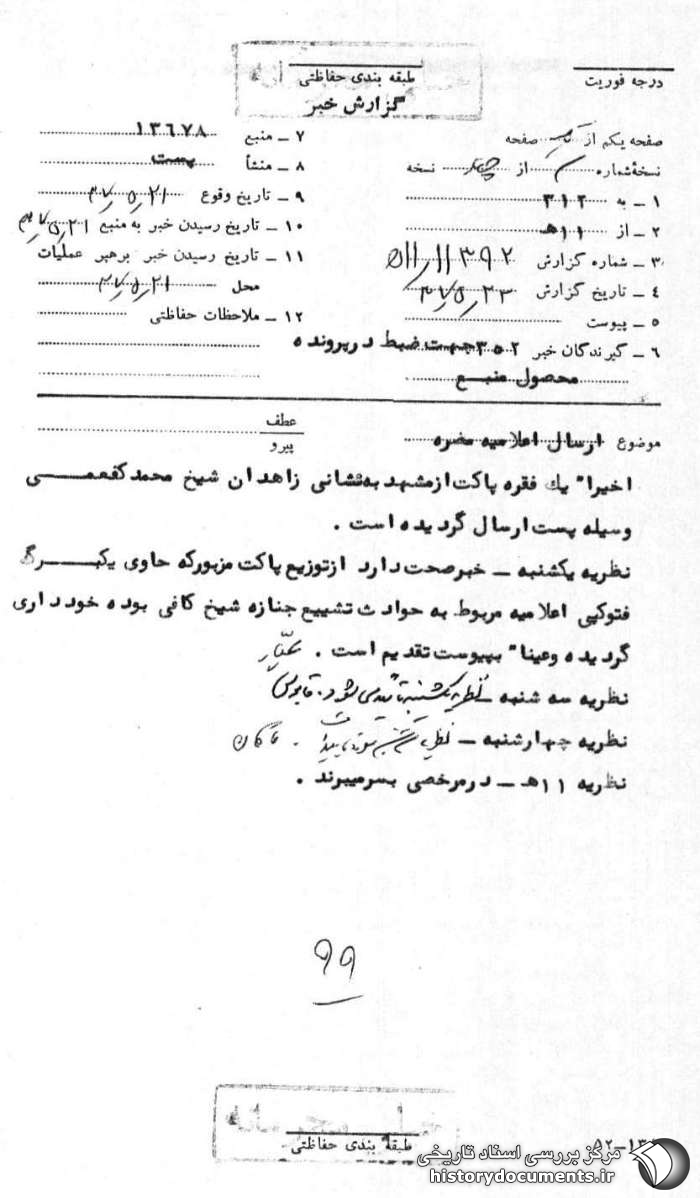 درجه فوریت
طبقه بندی حفاظتی
گزارش خبر
صفحه یکم از یک صفحه
نسخهٔ شماره از چهار نسخه
۱ ـ به ۳۱۲
۲ ـ از ۱۱ هـ
۳ ـ شماره گزارش ۱۱۳۹۲/ ۱۱ هـ
۴ ـ تاریخ گزارش ۳۷/۵/۲۳
۵ ـ پیوست
۶ ـ گیرندگان خبر ۳۵۲ جهت ضبط در پرونده
محصول منبع
۷ ـ منبع ۱۳۶۷۸
۸ ـ منشأ پست
۹ ـ تاریخ وقوع ۳۷/۵/۲۱
۱۰ ـ تاریخ رسیدن خبر به منبع ۳۷/۵/۲۱
۱۱ ـ تاریخ رسیدن خبر برهبر عملیات
محل ۳۷/۵/۲۱
۱۲ ـ ملاحظات حفاظتی
موضوع ارسال اعلامیه مضره
عطف
پیرو
اخیرا" یك فقره پاکت از مشهد به نشانی زاهدان شیخ محمد کفعمی
وسیله پست ارسال گردیده است .
نظریه یکشنبه ـ خبر صحت دارد از توزیع پاکت مزبور که حاوی یکبرگ
فتوکپی اعلامیه مربوط به حوادث تشییع جنازه شیخ کافی بوده خودداری
گردیده وعینا" بپیوست تقدیم است .
نظریه سه شنبه ـ نظریه یکشنبه تأیید می شود . قابوس
نظریه چهارشنبه ـ نظریه
نظریه ۱۱ هـ ـ در مرخصی بسر میبرند .
۹۹
طبقه بندی حفاظتی
مرکز بررسی اسناد تاریخی
historydocuments.ir